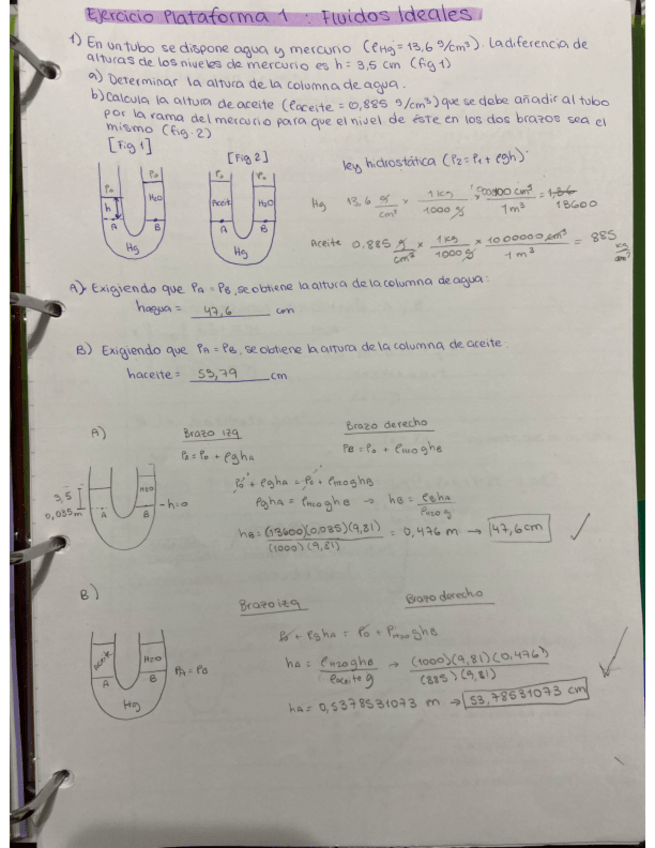 Ejercicio Plataforma 1 : Fluidos Ideales
1) En un tubo se dispone agua y mercurio (ρHg = 13,6 g/cm³). La diferencia de
alturas de los niveles de mercurio es h = 3,5 cm (fig 1)
a) Determinar la altura de la columna de agua.
b) Calcula la altura de aceite (ρaceite = 0,885 g/cm³) que se debe añadir al tubo
por la rama del mercurio para que el nivel de éste en los dos brazos sea el
mismo (fig. 2)
[Fig 1]
[Fig 2]
ley hidrostática (P2 = P1 + ρgh)
P0 P0 H2O h A B Hg
P0 P0 Aceit H2O A B Hg
Hg 13,6 g/cm³ × 1 kg/1000 g × cm³/1 m³ = 13600
Aceite 0,885 g/cm³ × 1 kg/1000 g × 1000000 cm³/1 m³ = 885
A) Exigiendo que PA = PB, se obtiene la altura de la columna de agua:
hagua = 47,6 cm
B) Exigiendo que PA = PB, se obtiene la altura de la columna de aceite:
haceite = 53,79 cm
A)
Brazo izq
Brazo derecho
PA = P0 + ρghA
PB = P0 + ρH2O ghB
P0 + ρghA = P0 + ρH2O ghB
ρghA = ρH2O ghB → hB = ρghA/ρH2O g
3,5
0,035m
H2O A B - h=0
hB = (13600)(0,035)(9,81)/(1000)(9,81) = 0,476 m → 47,6 cm
B)
Brazo izq
Brazo derecho
P0 + ρghA = P0 + ρH2O ghB
Aceite H2O A B Hg
PA = PB
hA = ρH2O ghB/ρaceite g → (1000)(9,81)(0,476)/(885)(9,81)
hA = 0,5378531073 m → 53,78531073 cm